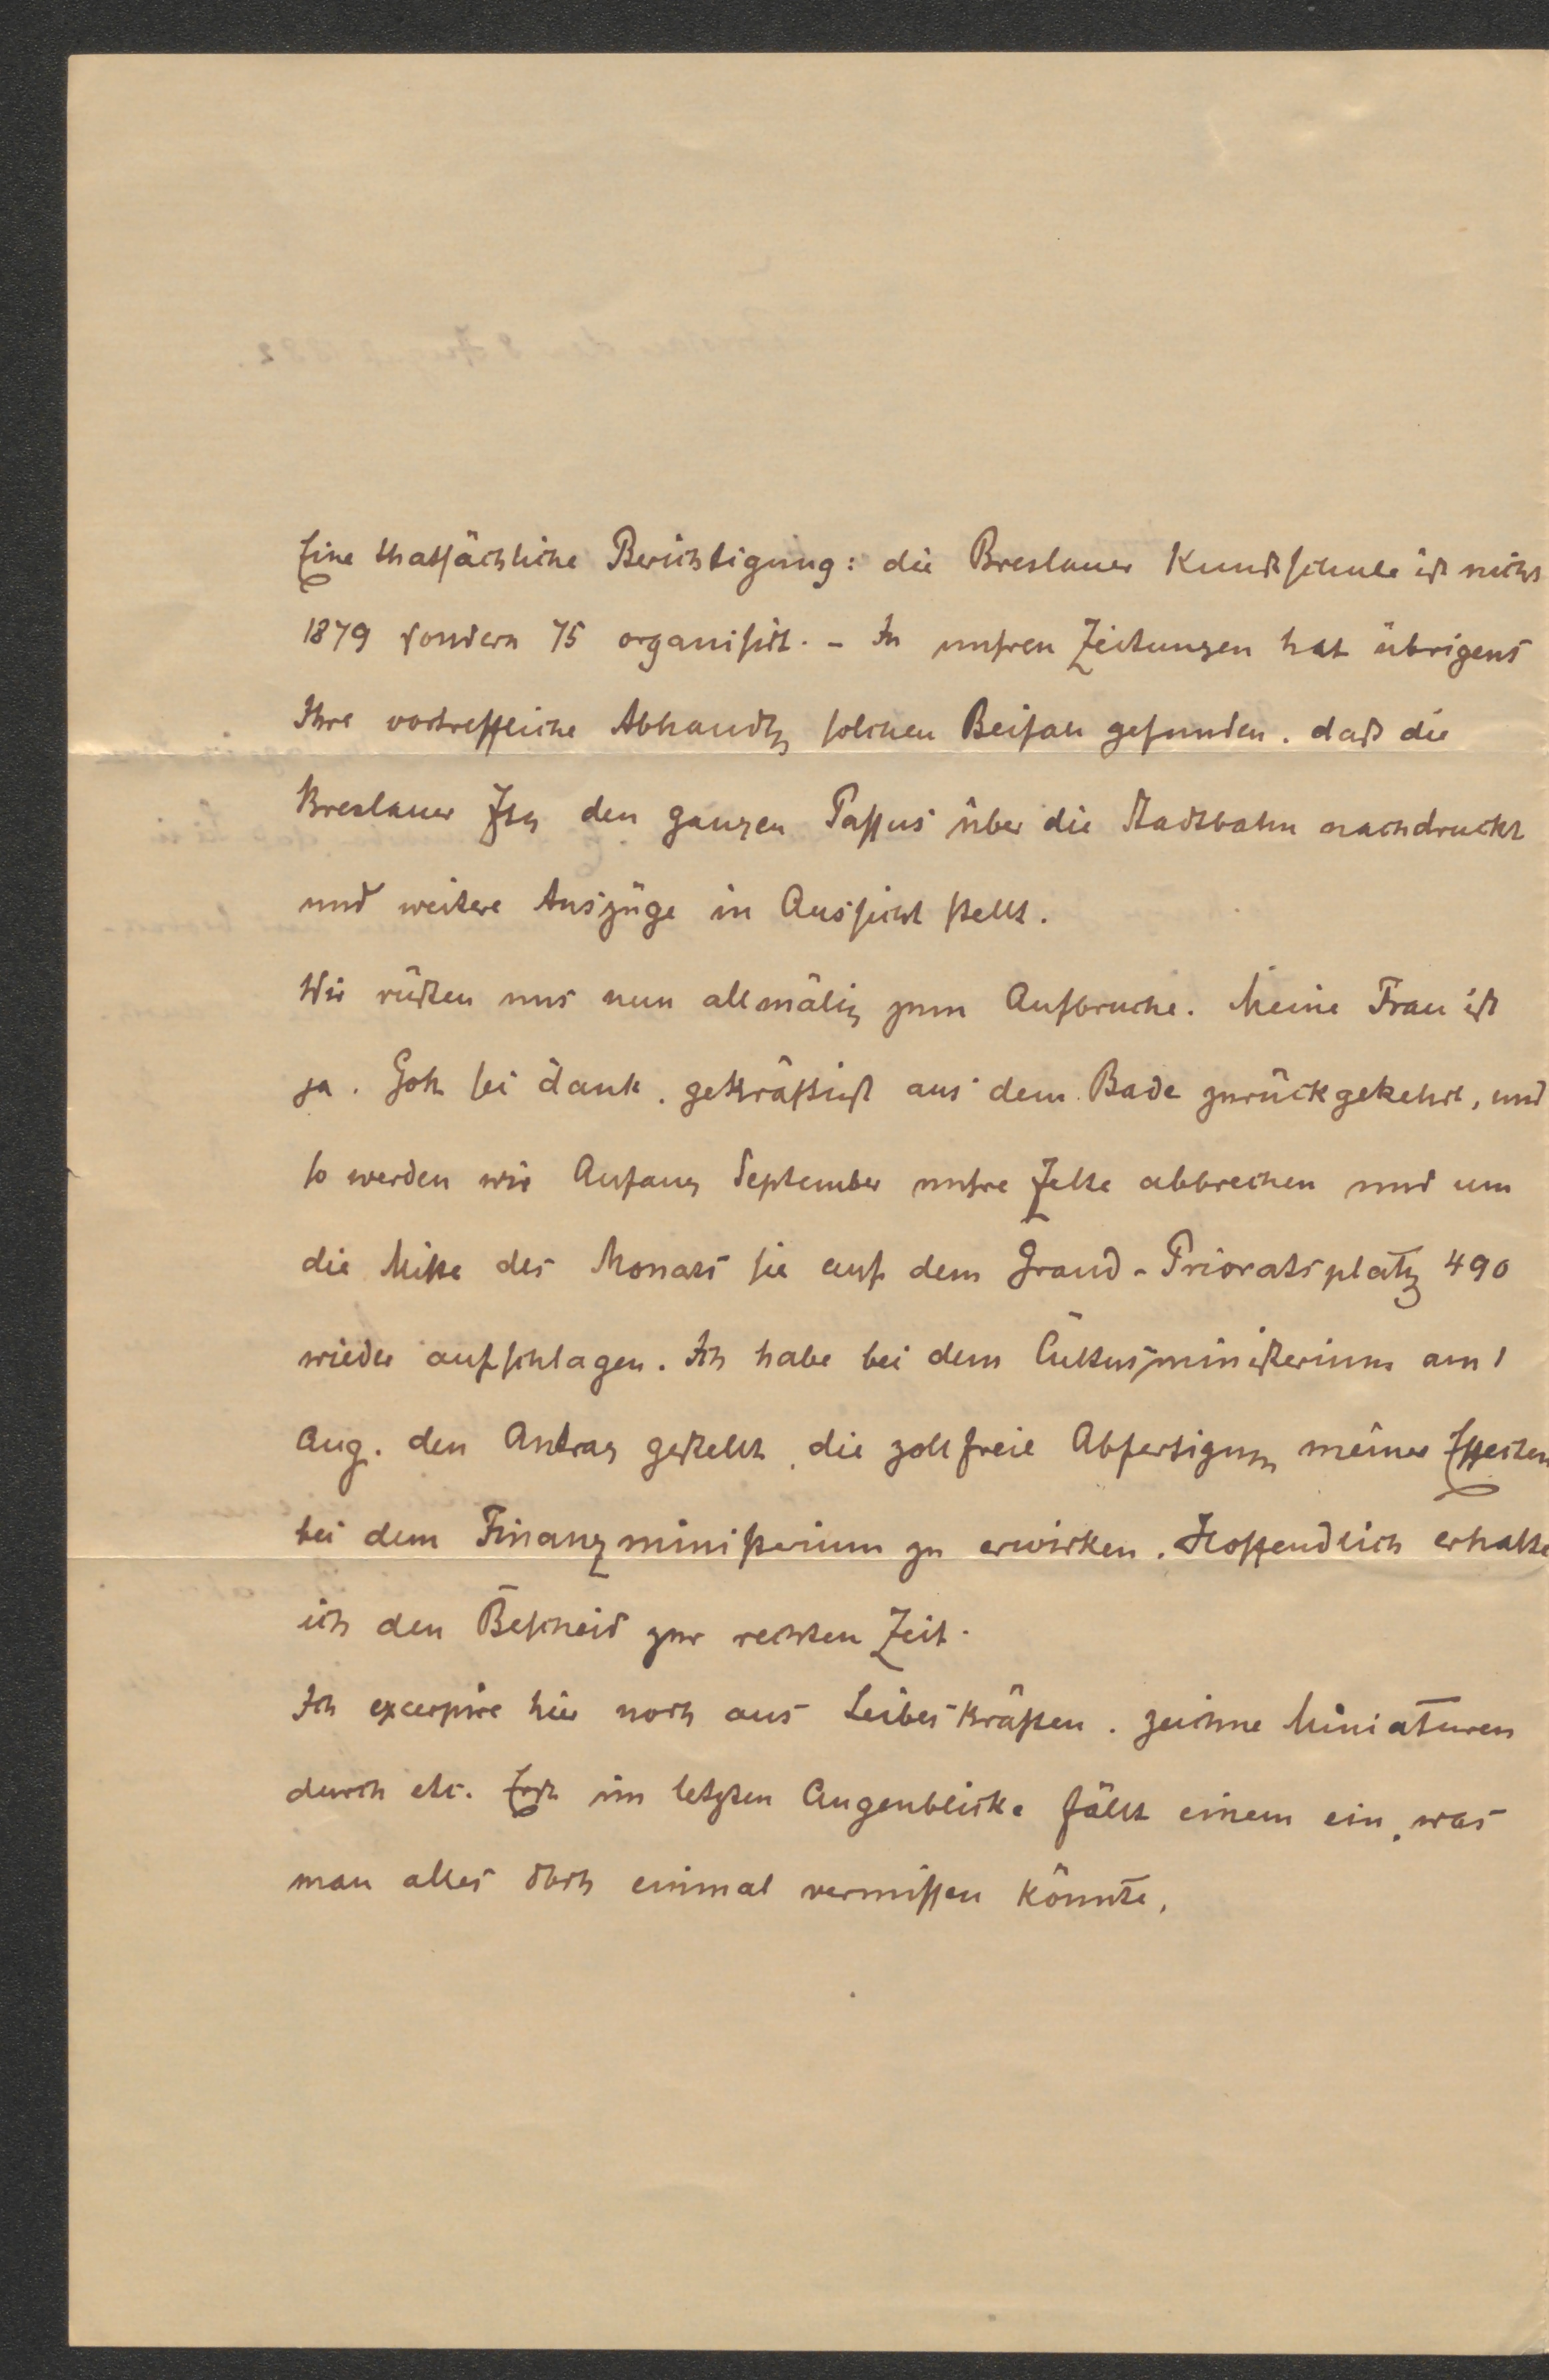 Eine thatsächliche Berichtigung: die Breslauer Kunstschule ist nicht
1879 sondern 75 organisirt. – In unsren Zeitungen hat übrigens
Ihre vortreffliche Abhandlg solchen Beifall gefunden, daß die
Breslauer Ztg den ganzen Passus über die Stadtbahn nachdruckt
und weitere Auszüge in Aussicht stellt.
Wir rüsten uns nun allmälig zum Aufbruche. Meine Frau ist
ja, Gott sei dank, gekräftigt aus dem Bade zurückgekehrt, und
so werden wir Anfang September unsre Zelte abbrechen und um
die Mitte des Monats sie auf dem Grand-Prioratsplatz 490
wieder aufschlagen. Ich habe bei dem Cultusministerium am 1
Aug. den Antrag gestellt, die zollfreie Abfertigung meiner Effecten
bei dem Finanzministerium zu erwirken. Hoffendlich erhalte
ich den Bescheid zur rechten Zeit.
Ich excerpire hier noch aus Leibeskräften, zeichne Miniaturen
durch etc. Erst im letzten Augenblicke fällt einem ein, was
man alles doch einmal vermissen könnte.